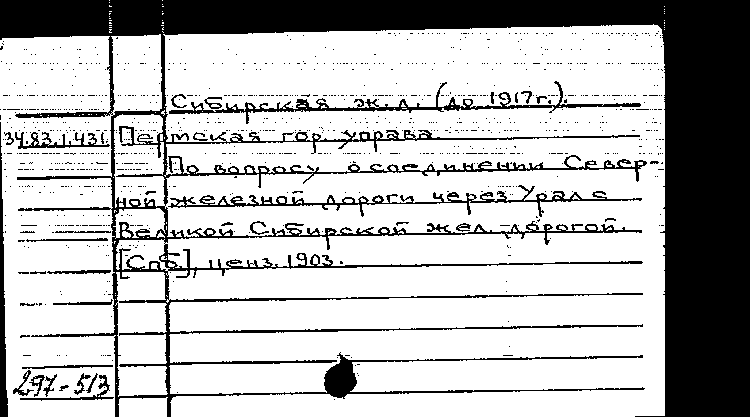 Сибирская ж. д. (до 1917г.).
34.83.1.431. Пермская гор. управа.
По вопросу о соединении Север-
ной железной дороги через Урал с
Великой Сибирской жел. дорогой.
[Спб.], ценз. 1903.
297-513